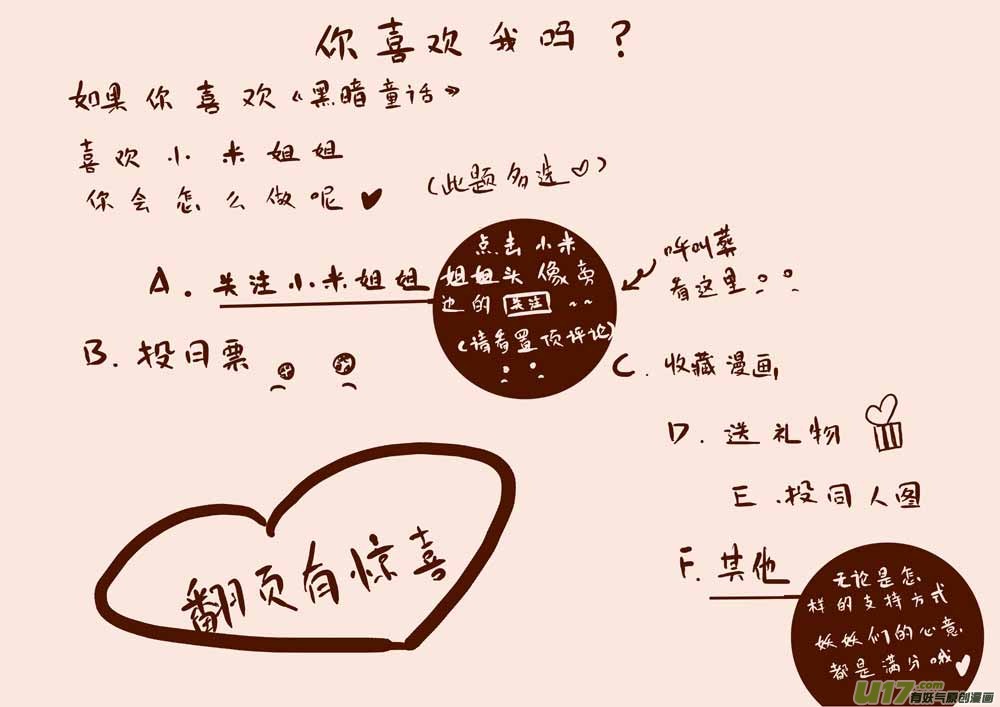 你喜欢我吗？
如果你喜欢《黑暗童话》
喜欢小米姐姐
你会怎么做呢♥
(此题多选♡)
A.关注小米姐姐
点击小米
姐姐头像旁
边的 关注 ~~
(请看置顶评论)
呼叫葬
看这里
B.投月票
C.收藏漫画
D.送礼物
E.投同人图
F.其他
无论是怎
样的支持方式
妖妖们的心意
都是满分哦
翻页有惊喜
U17.com
有妖气原创漫画